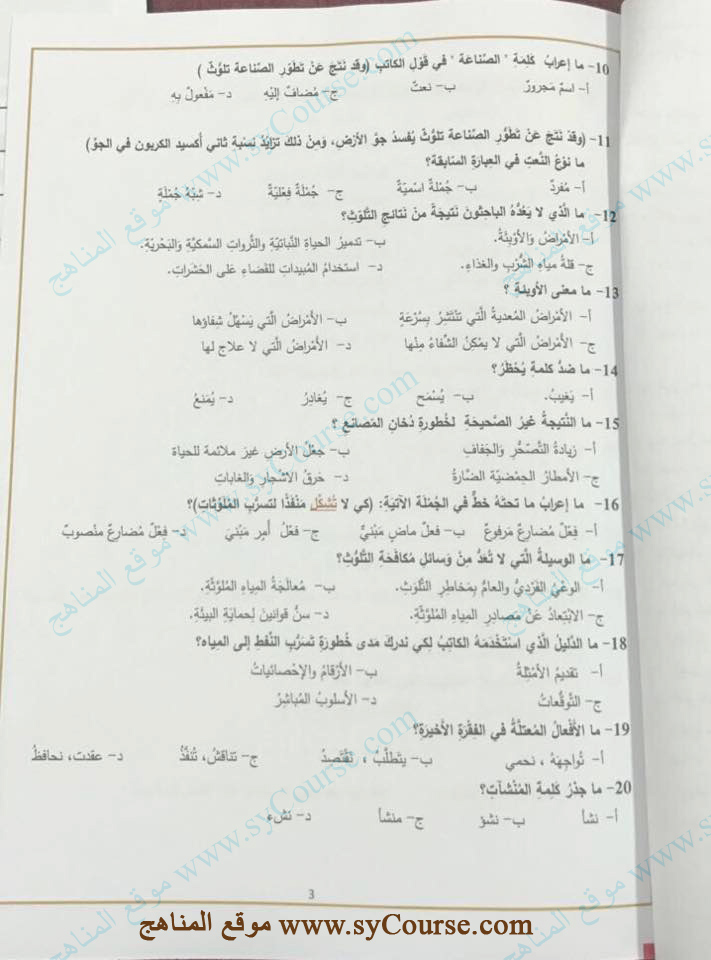 10- ما إعرابُ كَلِمَةِ " الصِّناعَة " في قَوْلِ الكاتِبِ (وقد نَتَجَ عَنْ تَطَوُّرِ الصِّناعة تلوُّثٌ )
أ- اسْم مَجرورٌ ب- نعتٌ ج- مُضافٌ إليْهِ د- مَفْعول بِهِ
11- (وقدْ نَتَجَ عَنْ تَطَوُّرِ الصِّناعة تلوُّثٌ يُفسدُ جوَّ الأرْضِ، وَمنْ ذلك تزايُدُ نِسْبَةِ ثاني أُكسيد الكربون في الجوّ)
ما نوْعُ النَّعتِ في العِبارَةِ السّابقة؟
أ- مُفردٌ ب- جُمْلةٌ اسْميّةٌ ج- جُملَةٌ فِعْليّةٌ د- شِبْهُ جُملَةٍ
12- ما الَّذي لا يَعُدُّهُ الباحِثونَ نَتيجَةً منْ نَتائجِ التَّلوّثِ؟
أ- الأمْراضُ والأَوْبِئَةُ. ب- تدميرُ الحياةِ النَّباتيَّةِ والثَّرواتِ السَّمكيَّةِ والبَحْريَّةِ.
ج- قلةُ مياهِ الشُّرْبِ والغذاءِ. د- استخدامُ المُبيداتِ للقَضاءِ عَلى الحَشَراتِ.
13- ما معنى الأوبئةِ ؟
أ- الأَمْراضُ المُعديةُ الَّتي تَنْتَشِرُ بِسُرْعَةٍ ب- الأَمْراضُ الَّتي يَسْهُلُ شِفاؤها
ج- الأمْراضُ الَّتي لا يمْكِنُ الشِّفاءُ مِنْها د- الأَمْراضُ الَّتي لا علاج لها
14- ما ضدُّ كلمةِ يُحْظَرُ؟
أ- يَغيبُ. ب- يُسْمَح ج- يُغادِرُ د- يُمْنَعُ
15- ما النَّتيجةُ غَيْرُ الصَّحيحَةِ لِخُطورةِ دُخانِ المَصانعِ ؟
أ- زيادةُ التَّصَحُّرِ والجَفافِ ب- جَعْلُ الأرضِ غيرَ ملائمة للحياة
ج- الأمطارُ الحِمْضيّةُ الضّارَّةُ د- حَرقُ الاشْجارِ والغاباتِ
16- ما إعرابُ ما تحتَهُ خطٌّ في الجُملَةِ الآتيَةِ: (كي لا تُشَكِّل مَنْفَذًا لتسرُّبِ المُلوِّثاتِ)؟
أ- فِعْلٌ مُضارعٌ مَرفوعٌ ب- فعلٌ ماضٍ مَبْنيٌّ ج- فعْلُ أمرٍ مَبْنيَ د- فِعْلٌ مُضارعٌ منْصوبٌ
17- ما الوسيلةُ الَّتي لا تُعَدُّ مِنْ وَسائلِ مُكافَحَةِ التَّلوُّثِ؟
أ- الوعْيُ الفَرْديُّ والعامُّ بِمَخاطرِ التَّلوّثِ. ب- مُعالَجَةُ المِياهِ المُلوّثَةِ.
ج- الابْتِعادُ عَنْ مَصادِرِ المِياهِ المُلوَّثَةِ. د- سنُّ قَوانينَ لِحمايَةِ البيئَةِ.
18- ما الدَّليلُ الَّذي اسْتَخْدَمَهُ الكاتِبُ لِكي ندركَ مَدى خُطورَةِ تَسَرُّبِ النَّفطِ إلى المِياه؟
أ- تقديمُ الأمْثِلَةُ ب- الأرْقامُ والإحْصائيات
ج- التَّوقُّعاتُ د- الأسلوبُ المُباشِرُ
19- ما الأفْعالُ المُعتَلَّةُ في الفِقْرَةِ الأخيرَةِ؟
أ- تُواجِهُهُ ، نحمي ب- يتَطلَّبُ ، تَقْتَصِدُ ج- تناقشُ، تُنفِّذُ د- عقدت، نحافظُ
20- ما جذرُ كَلِمَةِ المُنْشآتِ؟
أ- نشأ ب- نشوَ ج- منشأ د- نشيءَ
3
موقع المناهج www.syCourse.com